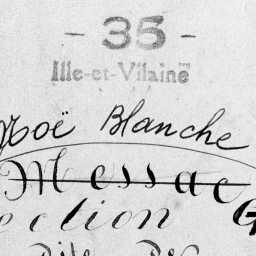 - 35 -
Ille-et-Vilaine
Noë Blanche
Messac
ection G
dite des